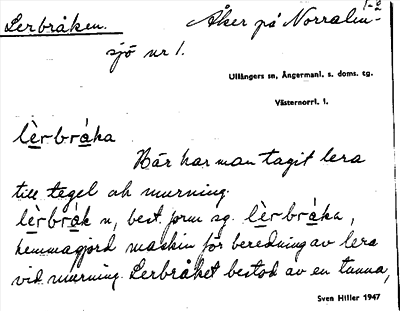 1-2
Lerbråken. Åker på Norralin-
sjö nr 1.
Ullångers sn, Ångermanl. s. doms. tg.
Västernorrl. l.
lèrbráka
Här har man tagit lera
till tegel och murning.
lèrbråk n, best. form sg. lèrbråka,
hemmagjord maskin för beredning av lera
vid murning. Lerbråket bestod av en tunna,
Sven Hiller 1947